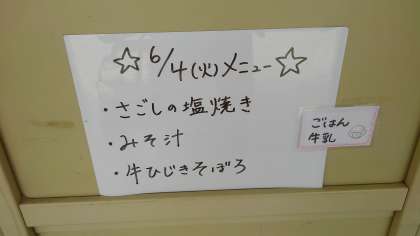 ☆6/4(火)メニュー☆
・さごしの塩焼き
・みそ汁
・牛ひじきそぼろ
ごはん
牛乳